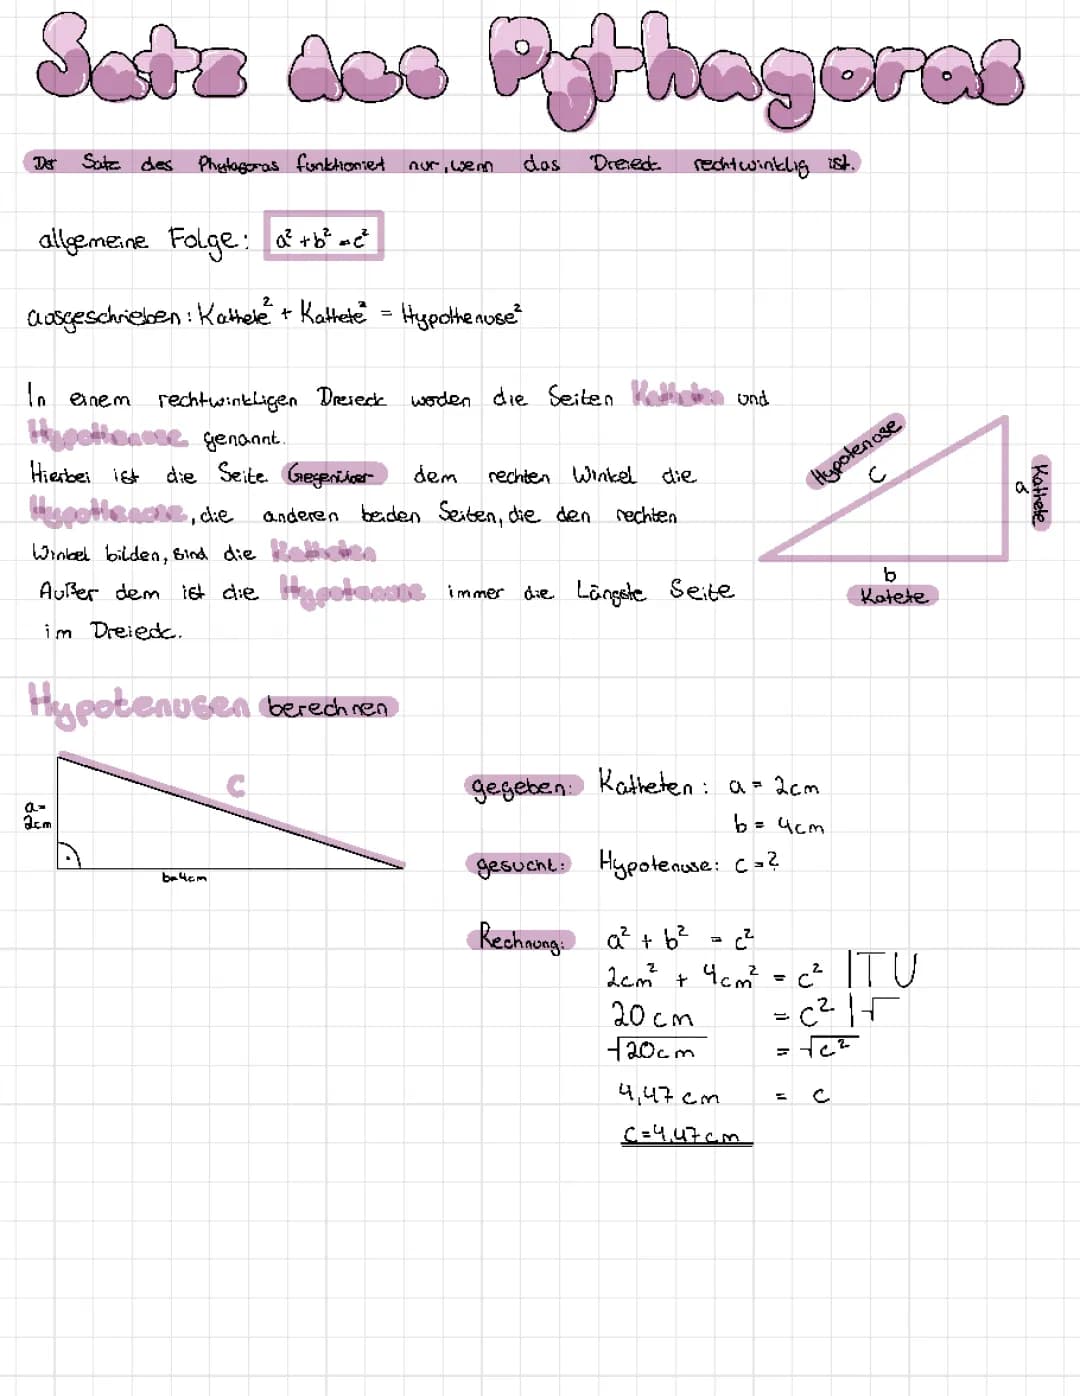 Satz des Pythagoras
Der Satz des Phytagoras funktioniert nur, wenn das Dreieck rechtwinklig ist.
allgemeine Folge: a² + b² = c²
ausgeschrieben: Kathete² + Kathete² = Hypothenuse²
In einem rechtwinkligen Dreieck werden die Seiten Katheten und
Hypothenuse genannt.
Hierbei ist die Seite Gegenüber dem rechten Winkel die
Hypothenuse, die anderen beiden Seiten, die den rechten
Winkel bilden, sind die Katheten
Außer dem ist die Hypotenuse immer die Längste Seite
im Dreieck.
Hypotenuse
c
a
Kathete
b
Katete
Hypotenusen berechnen
c
a=
2cm
b=4cm
gegeben: Katheten: a = 2cm
b = 4cm
gesucht: Hypotenuse: c = ?
Rechnung: a² + b² = c²
2cm² + 4cm² = c² |TU
20 cm = c² |√
√20cm = √c²
4,47 cm = c
c=4,47cm